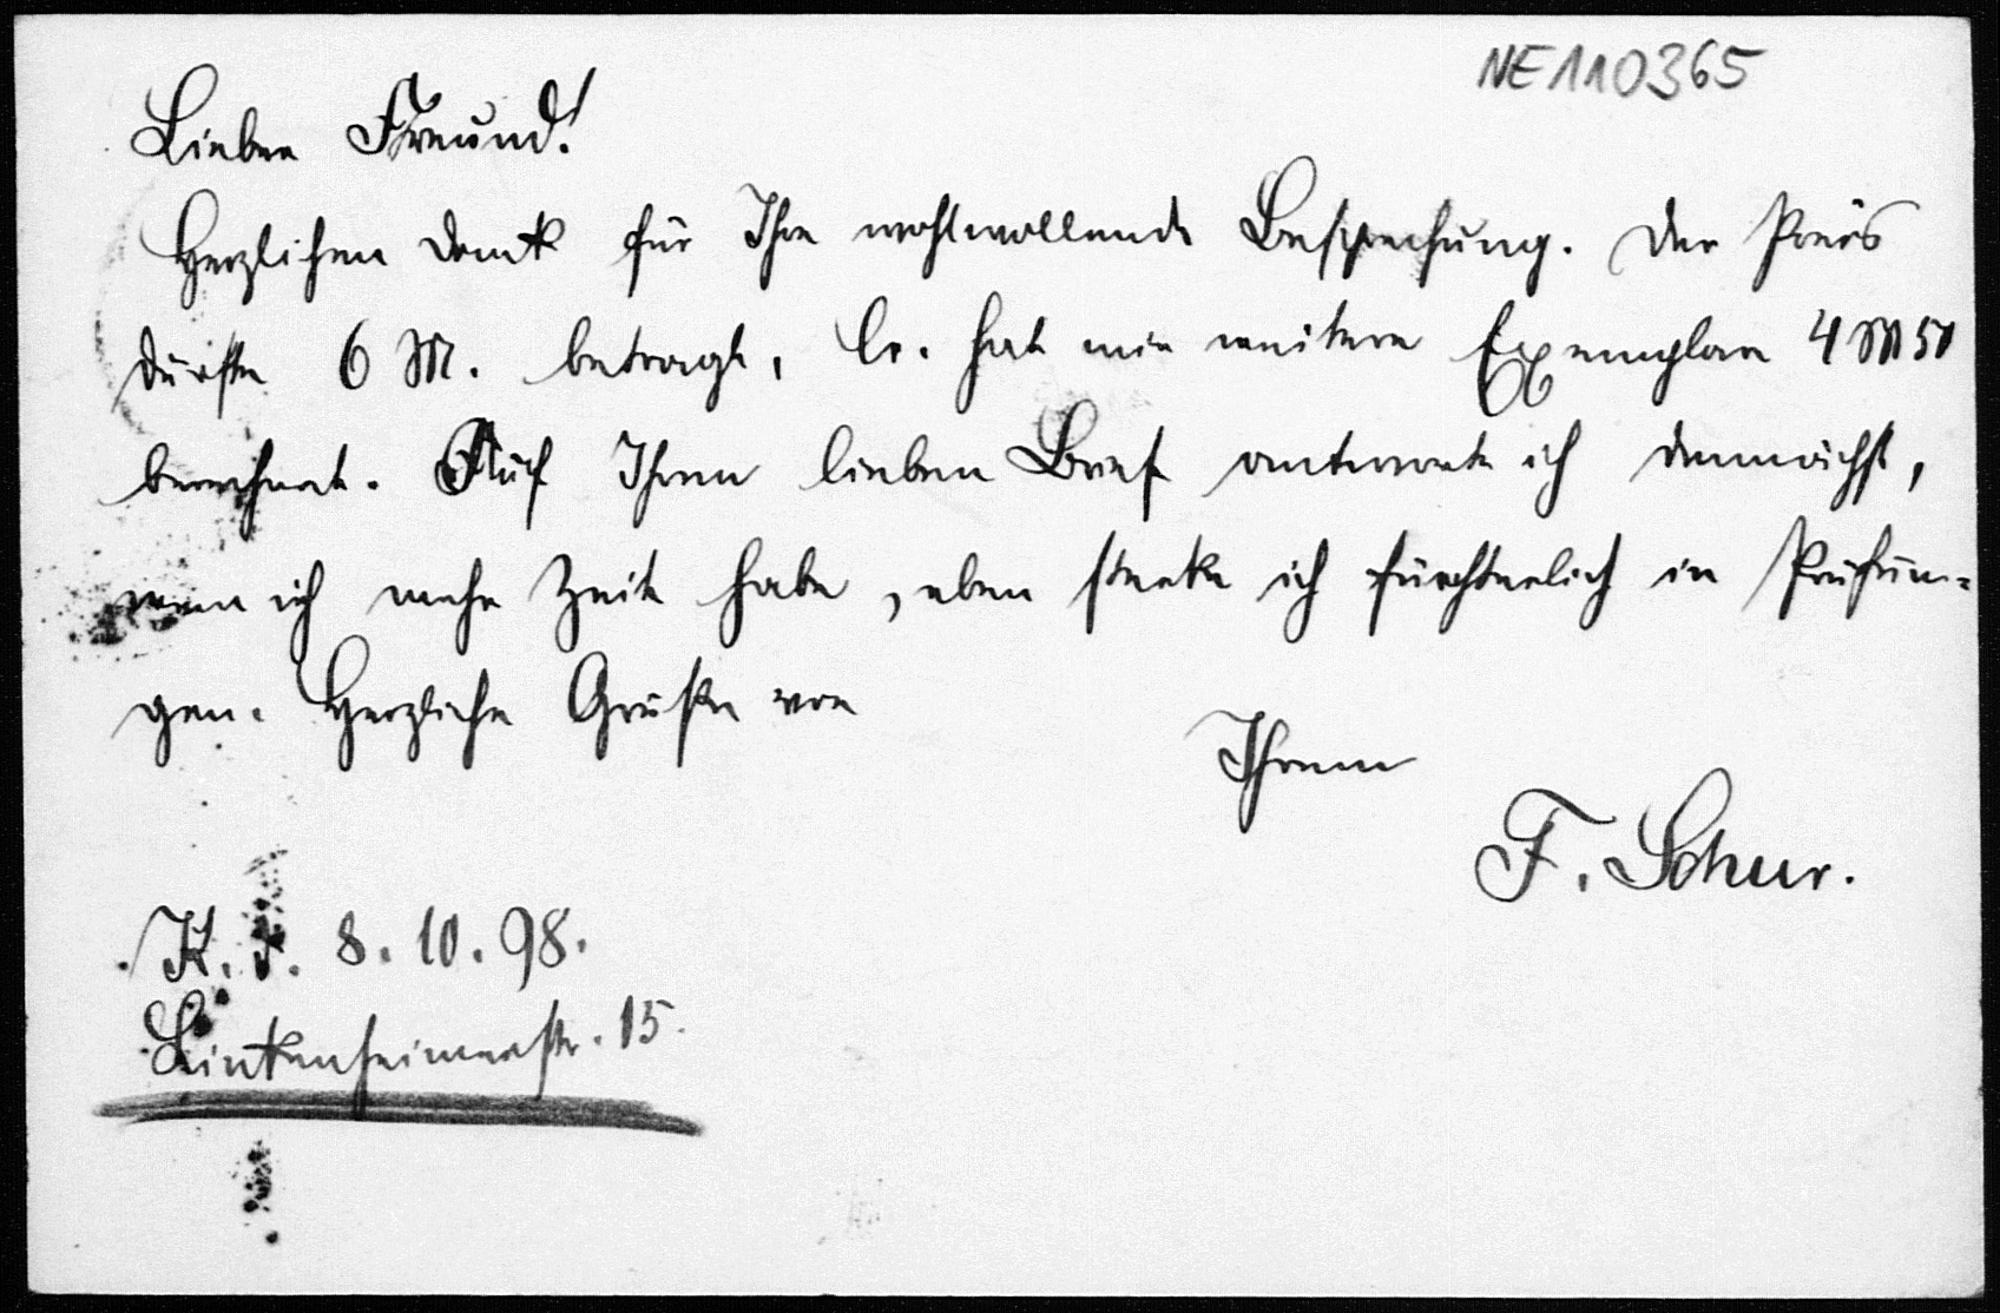 NE110365
Lieber Freund!
Herzlichen Dank für Ihre wohlwollende Besprechung. Der Preis
dürfte 6 M. betragen, Er. hat mir weitere Exemplare 4 M 50
berechnet. Auf Ihren lieben Brief antworte ich demnächst,
wenn ich mehr Zeit habe, eben stecke ich fürchterlich in Prüfun-
gen. Herzliche Grüße von
Ihrem
F. Schur.
K. 8.10.98.
Linkenheimerstr. 15.